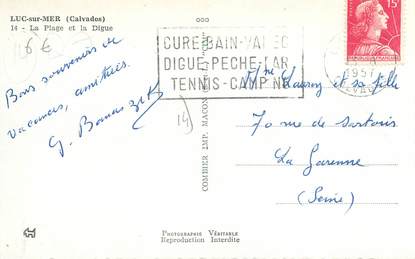 LUC-sur-MER (Calvados)
14 - La Plage et la Digue
6 €
Bons souvenirs de
vacances, amitiés.
G.
COMBIER IMP. MACON
14)
CURE-BAIN-VAREC
DIGUE-PECHE-
TENNIS-CAMPING
15F
1957
Mme et sa fille
70 rue de Sartoris
La Garenne
(Seine)
Photographie Véritable
Reproduction Interdite